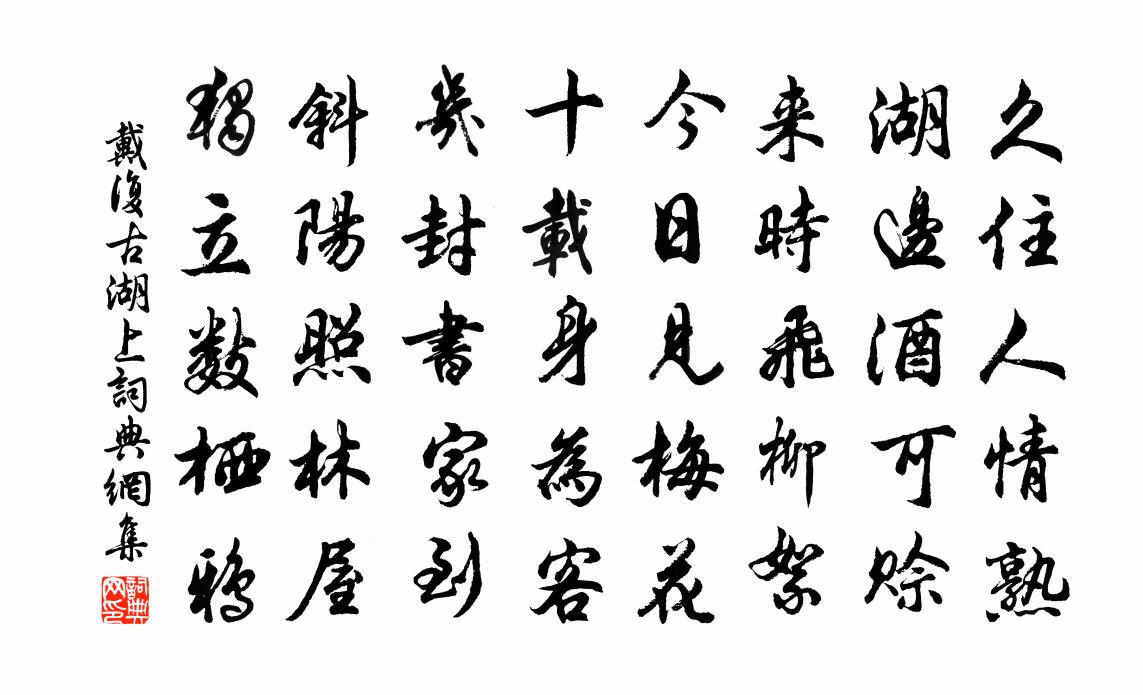 久住人情熟
湖邊酒可賒
来時飛柳絮
今日見梅花
十載身為客
幾封書家到
斜陽照林屋
獨立數栖鴉
戴復古湖上詞典網集
詞典網印